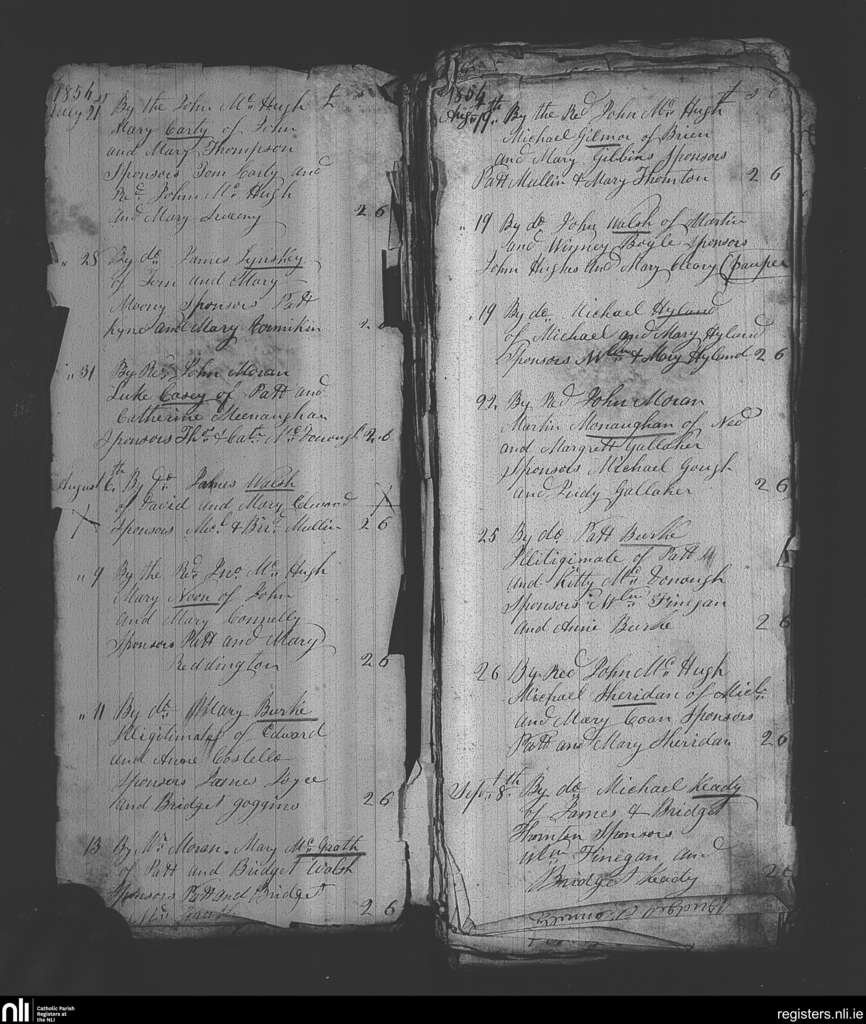 1854
July 21st By the John Mc Hugh £
Mary Carty of John
and Mary Thompson
Sponsors Tom Carty and
Red. John Mc Hugh
and Mary Sweeny 2 6
" 28 By do. James Lynskey
of Tom and Mary
Moony Sponsors Patt
Kyne and Mary
" 31 By Red. John Moran
Luke Casey of Patt and
Catherine Meenaughan
Sponsors Thos. & Cate. Mc Donough 2 6
August 6th By Do. James Walsh
of David and Mary Edward
Sponsors & Mullin 2 6
" 9 By the Red. Jno. Mc Hugh
Mary Noon of John
and Mary Connelly
Sponsors Patt and Mary
Reddington 2 6
" 11 By do. Mary Burke
Illigitimate of Edward
and Anne Costello
Sponsors James Joyce
and Bridget goggins 2 6
13 By Mr. Moran. Mary Mc Grath
of Patt and Bridget Walsh
Sponsors Patt and Bridget
2 6
1854 £ s d
Augt. 19th By the Red John Mc Hugh
Michael Gilmor of Brien
and Mary Gibbins Sponsors
Patt Mullin & Mary Thornton 2 6
" 19 By do. John Walsh of Martin
and Winney Boyle Sponsors
John Hughes and Mary Cleary (pauper
" 19 By do. Michael Hyland
of Michael and Mary Hyland
Sponsors & Mary Hyland 2 6
22. By Red John Moran
Martin Monaughan of Ned
and Margrett Gallaher
Sponsors Michael Gough
and Judy Gallaher 2 6
25 By do Patt Burke
Illitigimate of Patt
and Kitty Mc Donough
Sponsors Wm. Finegan
and Anne Burke 2 6
26 By Red John Mc Hugh
Michael Sheridan of Michl.
and Mary Coan Sponsors
Patt and Mary Sheridan 2 6
Sept. 8th By do Michael Keady
of James & Bridget
Thornton Sponsors
Wm Finegan and
Bridget Keady 2 6
nli
Catholic Parish
Registers at
the NLI
registers.nli.ie